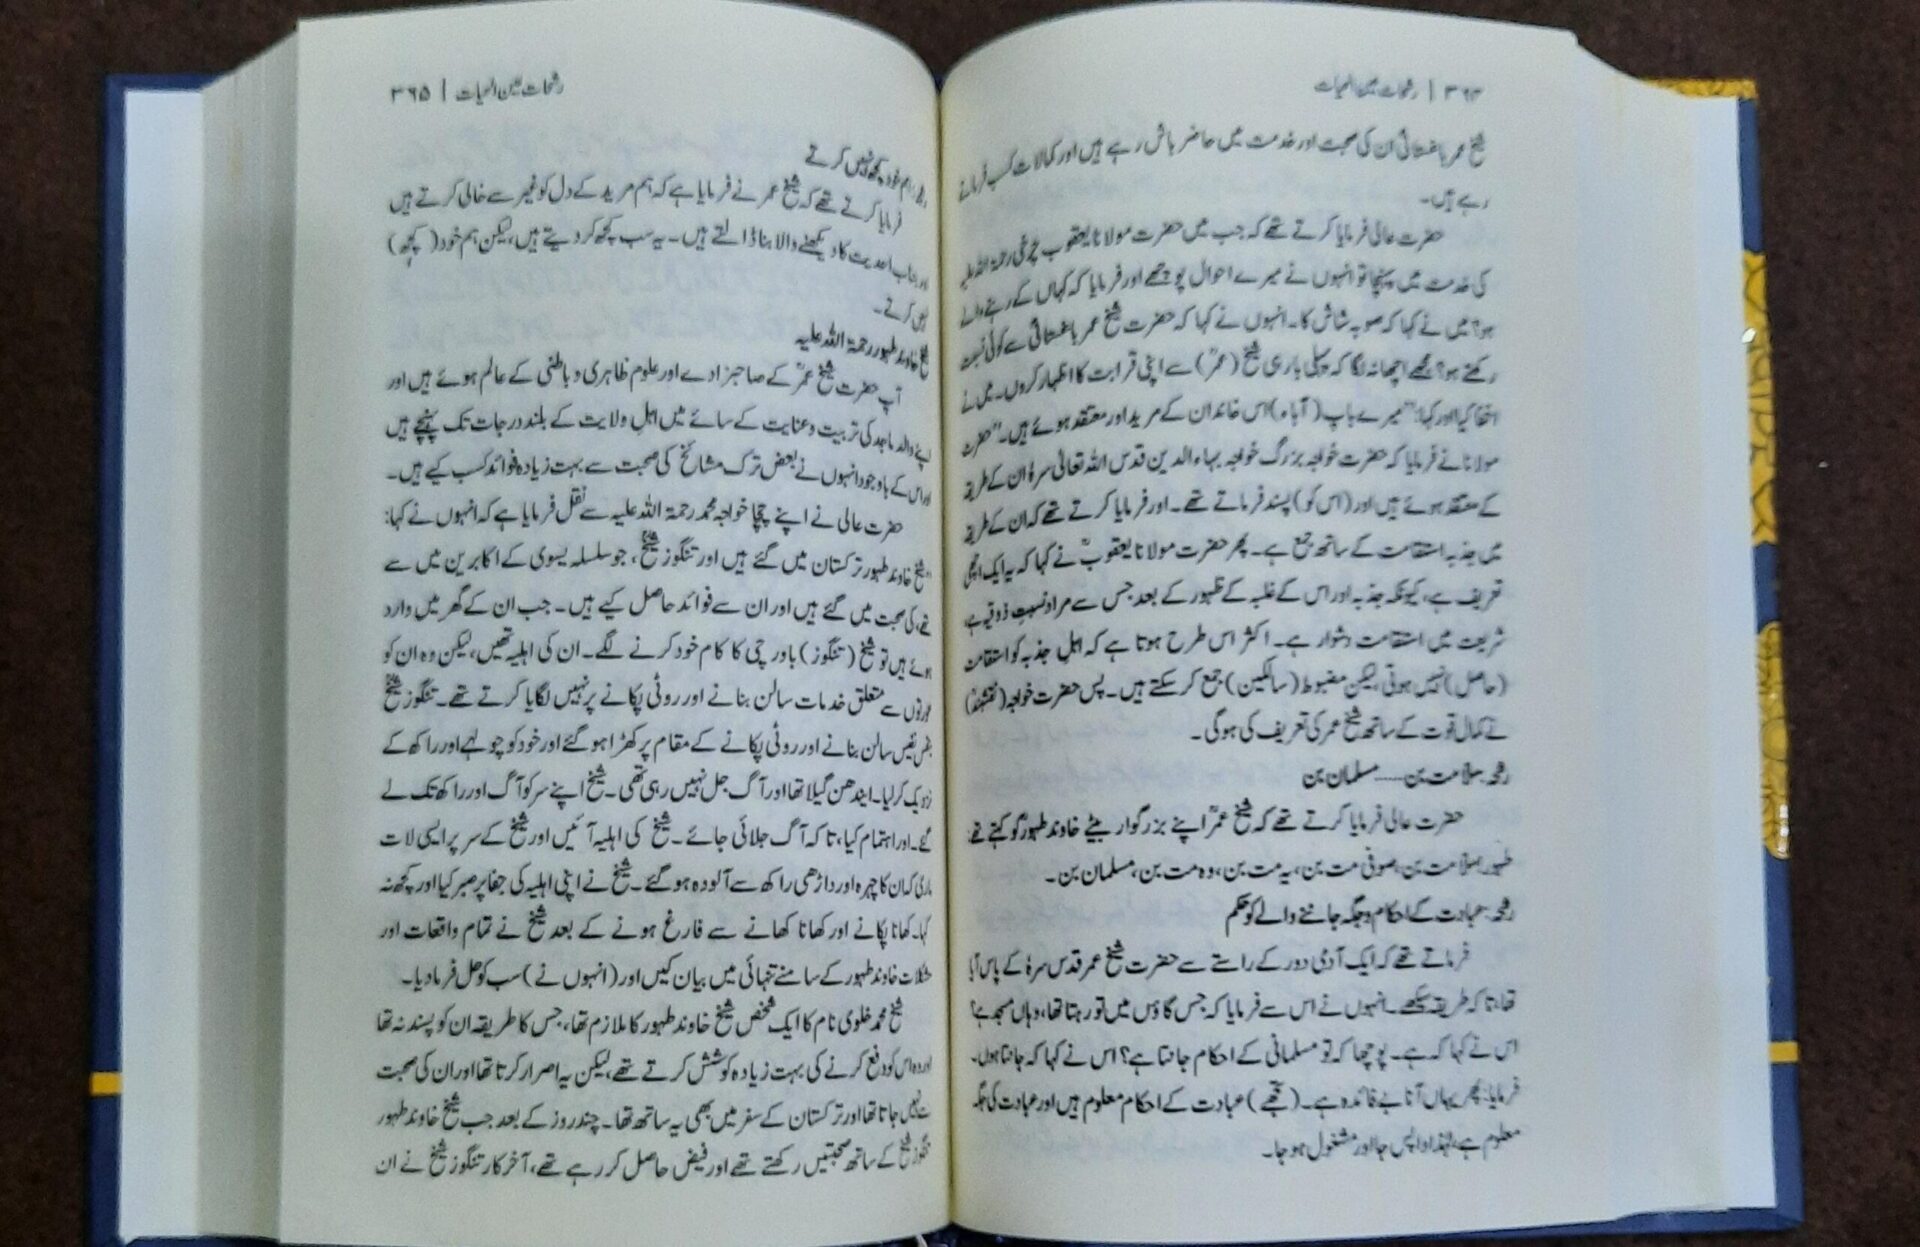 ۳۶۴ | رشحات عین الحیات
شیخ عمر باغستانیؒ ان کی صحبت اور خدمت میں حاضر باش رہے ہیں اور کمالات کسب فرماتے
رہے ہیں۔
حضرت عالی فرمایا کرتے تھے کہ جب میں حضرت مولانا یعقوب چرخی رحمۃ اللہ علیہ
کی خدمت میں پہنچا تو انہوں نے میرے احوال پوچھے اور فرمایا کہ کہاں کے رہنے والے
ہو؟ میں نے کہا کہ صوبہ شاش کا۔ انہوں نے کہا کہ حضرت شیخ عمر باغستانیؒ سے کوئی نسبت
رکھتے ہو؟ مجھے اچھا نہ لگا کہ پہلی بار ہی شیخ (عمرؒ) سے اپنی قرابت کا اظہار کروں۔ میں نے
اخفا کیا اور کہا: ”میرے باپ (آباء) اس خاندان کے مرید اور معتقد ہوئے ہیں۔“ حضرت
مولانا نے فرمایا کہ حضرت خواجہ بزرگ خواجہ بہاء الدین قدس اللہ تعالیٰ سرہٗ ان کے طریقہ
کے معتقد ہوئے ہیں اور (اس کو) پسند فرماتے تھے۔ اور فرمایا کرتے تھے کہ ان کے طریقہ
میں جذبہ استقامت کے ساتھ جمع ہے۔ پھر حضرت مولانا یعقوبؒ نے کہا کہ یہ ایک اچھی
تعریف ہے، کیونکہ جذبہ اور اس کے غلبہ کے ظہور کے بعد جس سے مراد نسبتِ ذوقیہ ہے،
شریعت میں استقامت دشوار ہے۔ اکثر اس طرح ہوتا ہے کہ اہلِ جذبہ کو استقامت
(حاصل) نہیں ہوتی، لیکن مضبوط (سالکین) جمع کر سکتے ہیں۔ پس حضرت خواجہ (نقشبندؒ)
نے کمال قوت کے ساتھ شیخ عمر کی تعریف کی ہوگی۔
رشحہ: ملا مت بن.....مسلمان بن
حضرت عالی فرمایا کرتے تھے کہ شیخ عمرؒ اپنے بزرگوار بیٹے خاوند طہورؒ کو کہتے تھے:
طہور! ملا مت بن، صوفی مت بن، یہ مت بن، وہ مت بن، مسلمان بن۔
رشحہ: عبادت کے احکام و جگہ جاننے والے کو حکم
فرماتے تھے کہ ایک آدمی دور کے راستے سے حضرت شیخ عمر قدس سرہٗ کے پاس آیا
تھا، تا کہ طریقہ سیکھے۔ انہوں نے اس سے فرمایا کہ جس گاؤں میں تو رہتا تھا، وہاں مسجد ہے؟
اس نے کہا کہ ہے۔ پوچھا کہ تو مسلمانی کے احکام جانتا ہے؟ اس نے کہا کہ جانتا ہوں۔
فرمایا: پھر یہاں آنا بے فائدہ ہے۔ (تجھے) عبادت کے احکام معلوم ہیں اور عبادت کی جگہ
معلوم ہے، لہٰذا واپس جا اور مشغول ہو جا۔
رشحات عین الحیات | ۳۶۵
رشحہ: ہم خود کچھ نہیں کرتے
فرمایا کرتے تھے کہ شیخ عمر نے فرمایا ہے کہ ہم مرید کے دل کو غیر سے خالی کرتے ہیں
اور جناب احدیت کا دیکھنے والا بنا ڈالتے ہیں۔ یہ سب کچھ کر دیتے ہیں، لیکن ہم خود (کچھ)
نہیں کرتے۔
شیخ خاوند طہور رحمۃ اللہ علیہ
آپ حضرت شیخ عمرؒ کے صاحبزادے اور علوم ظاہری و باطنی کے عالم ہوئے ہیں اور
اپنے والد ماجد کی تربیت و عنایت کے سائے میں اہلِ ولایت کے بلند درجات تک پہنچے ہیں
اور اس کے باوجود انہوں نے بعض ترک مشائخ کی صحبت سے بہت زیادہ فوائد کسب کیے ہیں۔
حضرت عالی نے اپنے چچا خواجہ محمد رحمۃ اللہ علیہ سے نقل فرمایا ہے کہ انہوں نے کہا:
”شیخ خاوند طہور ترکستان میں گئے ہیں اور تنگوز شیخؒ، جو سلسلہ یسوی کے اکابرین میں سے
تھے، کی صحبت میں گئے ہیں اور ان سے فوائد حاصل کیے ہیں۔ جب ان کے گھر میں وارد
ہوئے ہیں تو شیخ (تنگوز) باورچی کا کام خود کرنے لگے۔ ان کی اہلیہ تھیں، لیکن وہ ان کو
عورتوں سے متعلق خدمات سالن بنانے اور روٹی پکانے پر نہیں لگایا کرتے تھے۔ تنگوز شیخؒ
بنفس نفیس سالن بنانے اور روٹی پکانے کے مقام پر کھڑا ہو گئے اور خود کو چولہے اور راکھ کے
نزدیک کر لیا۔ ایندھن گیلا تھا اور آگ جل نہیں رہی تھی۔ شیخ اپنے سر کو آگ اور راکھ تک لے
گئے۔ اور اہتمام کیا، تا کہ آگ جلائی جائے۔ شیخ کی اہلیہ آئیں اور شیخ کے سر پر ایسی لات
ماری کہ ان کا چہرہ اور داڑھی راکھ سے آلودہ ہو گئے۔ شیخ نے اپنی اہلیہ کی جفا پر صبر کیا اور کچھ نہ
کہا۔ کھانا پکانے اور کھانا کھانے سے فارغ ہونے کے بعد شیخ نے تمام واقعات اور
مشکلات خاوند طہور کے سامنے تنہائی میں بیان کیں اور (انہوں نے) سب کو حل فرما دیا۔
شیخ محمد خلوی نام کا ایک شخص شیخ خاوند طہور کا ملازم تھا، جس کا طریقہ ان کو پسند نہ تھا
اور وہ اس کو دفع کرنے کی بہت زیادہ کوشش کرتے تھے، لیکن یہ اصرار کرتا تھا اور ان کی صحبت
سے نہیں جاتا تھا اور ترکستان کے سفر میں بھی یہ ساتھ تھا۔ چند روز کے بعد جب شیخ خاوند طہور
تنگوز شیخؒ کے ساتھ صحبتیں رکھتے تھے اور فیض حاصل کر رہے تھے، آخر کار تنگوز شیخؒ نے ان